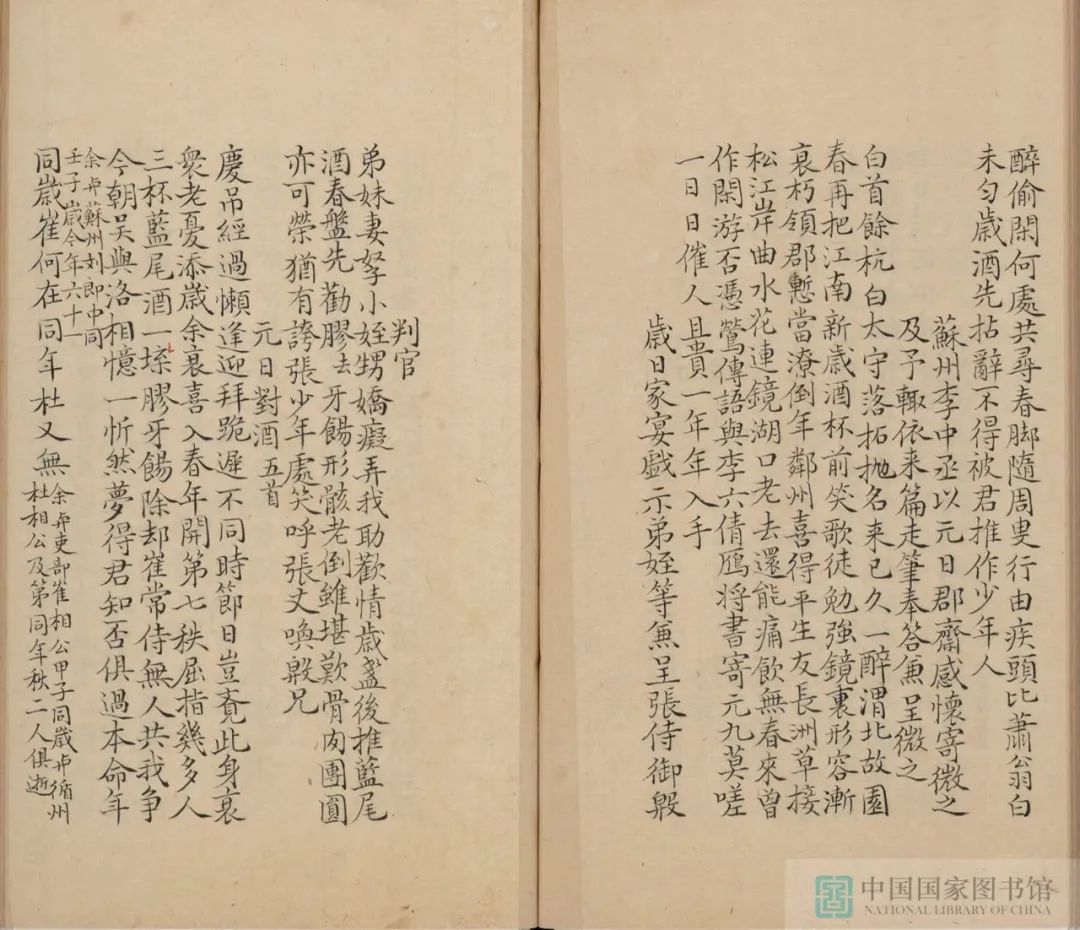 醉偷閑何處共尋春脚隨周叟行由疾頭比蕭翁白
未匀歳酒先拈辭不得被君推作少年人
蘇州李中丞以元日郡齋感懷寄微之
及予輙依来篇走筆奉答兼呈微之
白首餘杭白太守落拓抛名来已久一醉渭北故園
春再把江南新歳酒杯前笑歌徒勉強鏡裏形容漸
衰朽領郡慙當潦倒年鄰州喜得平生友長洲草接
松江岸曲水花連鏡湖口老去還能痛飲無春來曾
作閑游否憑鶯傳語與李六倩鴈将書寄元九莫嗟
一日日催人且貴一年年入手
歳日家宴戯示弟姪等兼呈張侍御殷
判官
弟妹妻孥小姪甥嬌癡弄我助歡情歳盞後推藍尾
酒春盤先勸膠去牙餳形骸老倒雖堪歎骨肉團圓
亦可榮猶有誇張少年處笑呼張丈喚殷兄
元日對酒五首
慶吊經過懶逢迎拜跪遲不同時節日豈覺此身衰
衆老憂添歳余衰喜入春年開第七秩屈指幾多人
三杯藍尾酒一楪膠牙餳除却崔常侍無人共我争
今朝吴與洛相憶一忻然夢得君知否俱過本命年
余与蘇州刘郎中同
壬子歳今年六十一
同歳崔何在同年杜又無
余与吏部崔相公甲子同歳与循州
杜相公及第同年秋二人俱逝
中国国家图书馆
NATIONAL LIBRARY OF CHINA